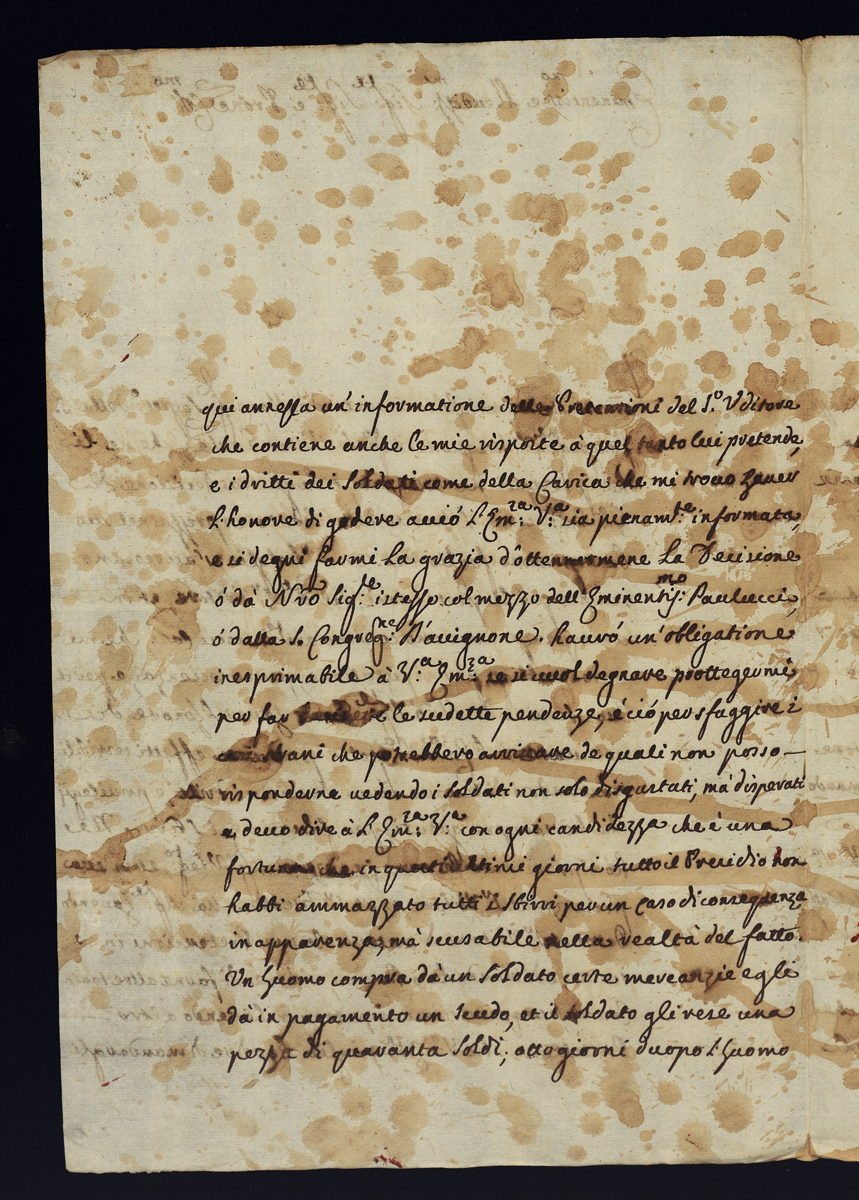 qui annessa un' informatione delle Pretensioni del S.º Vditore
che contiene anche le mie risposte à quel tanto lui pretende,
e i dritti dei Soldati come della Carica che mi trovo haver
l'honore di godere acciò l'Em.ᶻᵃ V.ᵃ sia pienam.ᵗᵉ informata,
e si degni farmi la grazia d'ottennermene la Decisione
ó dà Nr̃o Sig.ʳᵉ istesso col mezzo dell' Eminentiss.ᵐᵒ Paulucci,
ó dalla S. Congreg.ⁿᵉ d'Avignone. haurò un'obligatione
inesprimabile à V.ᵃ Em.ᶻᵃ se si vuol degnare prottegermi
per far le sudette pendenze, é ciò per sfuggire i
che potrebbero arrivare de quali non posso —
risponderne vedendo i soldati non solo disgustati, mà disperati
e devo dire à l'Em.ᶻᵃ V.ᵃ con ogni candidezza che è una
fortuna che in questi ultimi giorni tutto il Presidio non
habbi ammazzato tutti i Sbirri per un caso di consequenza
in apparenza, mà scusabile nella realtà del fatto.
Un huomo compra dà un soldato certe mercanzie e gli
dà in pagamento un scudo, et il soldato gli rese una
pezza di quaranta soldi; otto giorni duopo l'huomo